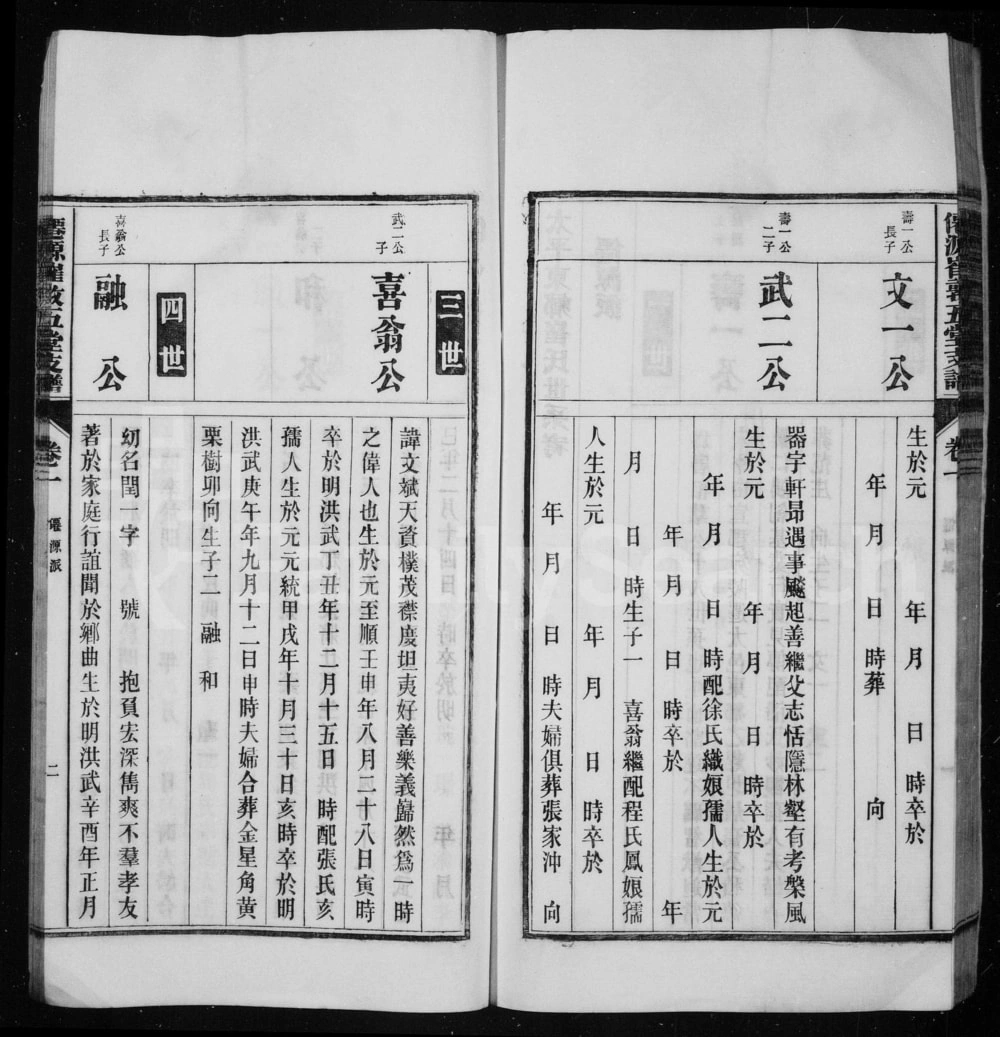 壽一公
長子
文一公
生於元　年　月　日　時卒於
年　月　日　時葬　向
壽一公
二子
武二公
器宇軒昻遇事飈起善繼父志恬隱林壑有考槃風
生於元　年　月　日　時卒於
年　月　日　時配徐氏織娘孺人生於元
年　月　日　時卒於　年
月　日　時生子一　喜翁繼配程氏鳳娘孺
人生於元　年　月　日　時卒於
年　月　日　時夫婦俱葬張家沖　向
三世
武二公
子
喜翁公
諱文斌天資樸茂襟慶坦夷好善樂義巋然爲一時
之偉人也生於元至順壬申年八月二十八日寅時
卒於明洪武丁丑年十二月十五日　時配張氏亥
孺人生於元元統甲戌年十月三十日亥時卒於明
洪武庚午年九月十二日申時夫婦合葬金星角黄
栗樹卯向生子二　融　和
四世
喜翁公
長子
融公
幼名閏一字　號　抱負宏深雋爽不羣孝友
著於家庭行誼聞於鄉曲生於明洪武辛酉年正月
卷一
僊源派
二